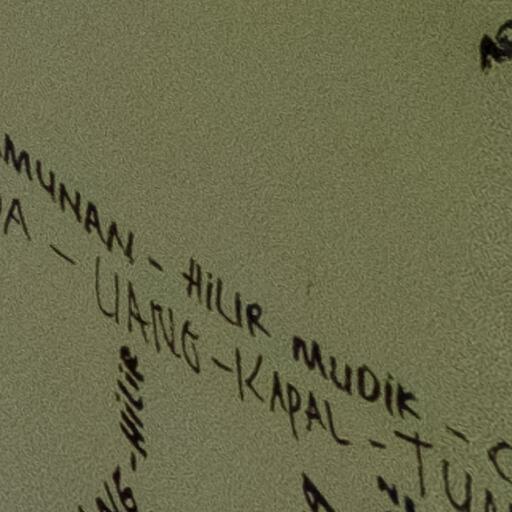 MUNAN - HiLiR MUDiK -
A - UANG - KAPAL - TUN
NG - HiLiR